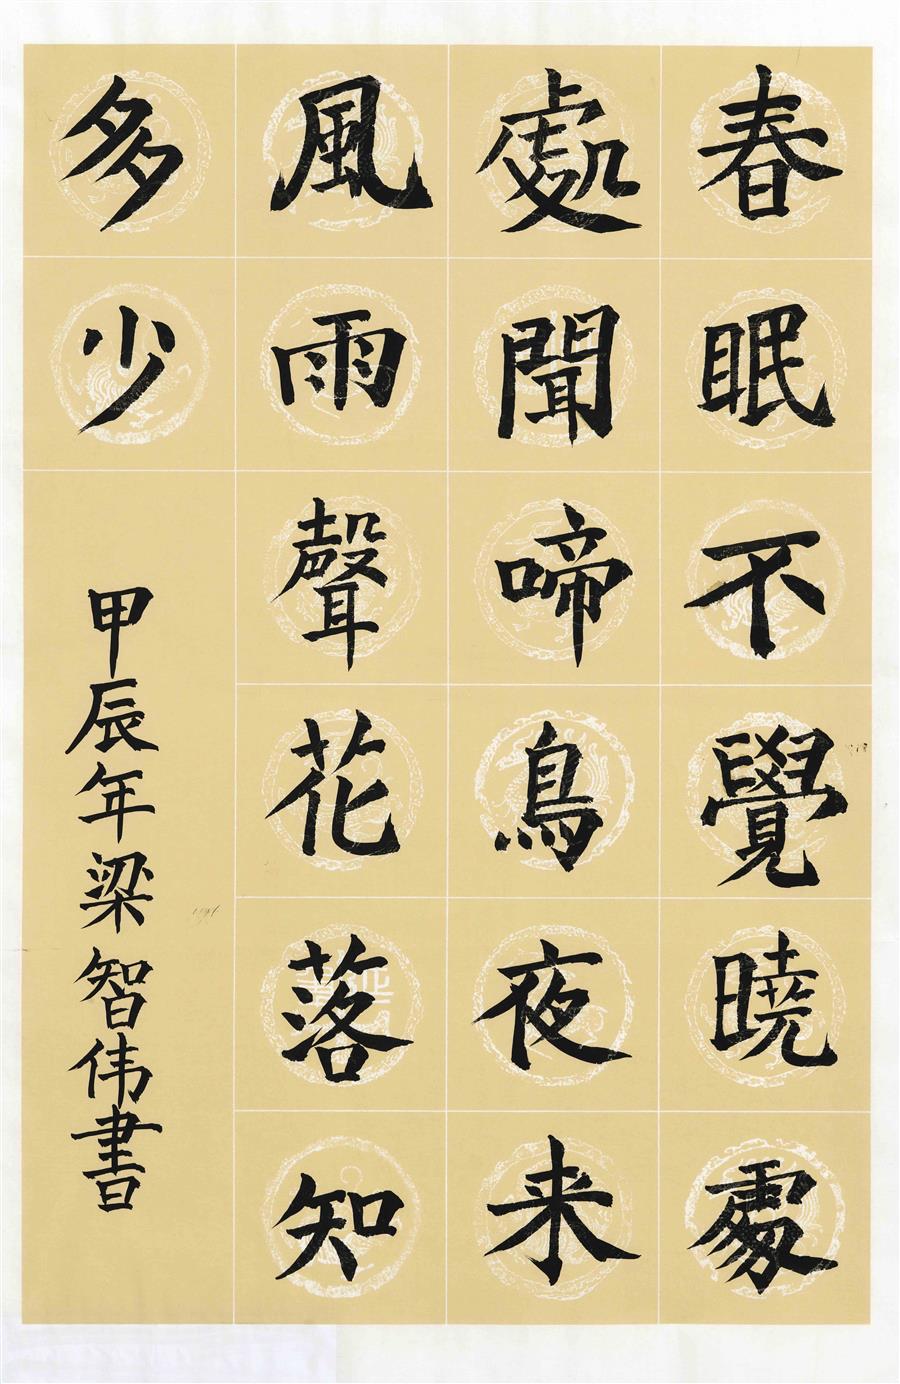 春眠不覺曉處
處聞啼鳥夜来
風雨聲花落知
多少
甲辰年梁智伟書